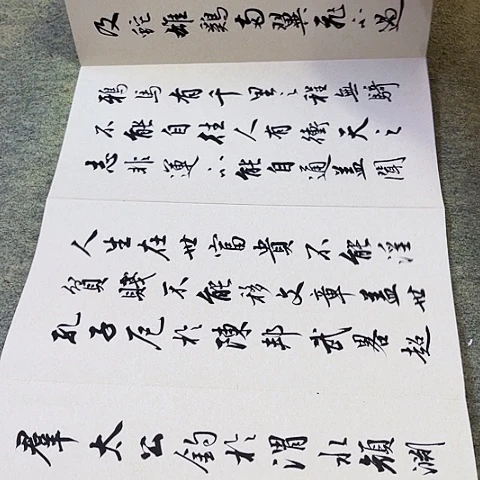 及蛇雄鷄兩翼飛不過
鴉馬有千里之程無騎
不能自往人有衝天之
志非運不能自通蓋聞
人生在世富貴不能淫
貧賤不能移文章蓋世
孔子厄於陳邦武畧超
羣太公釣於渭水顔淵